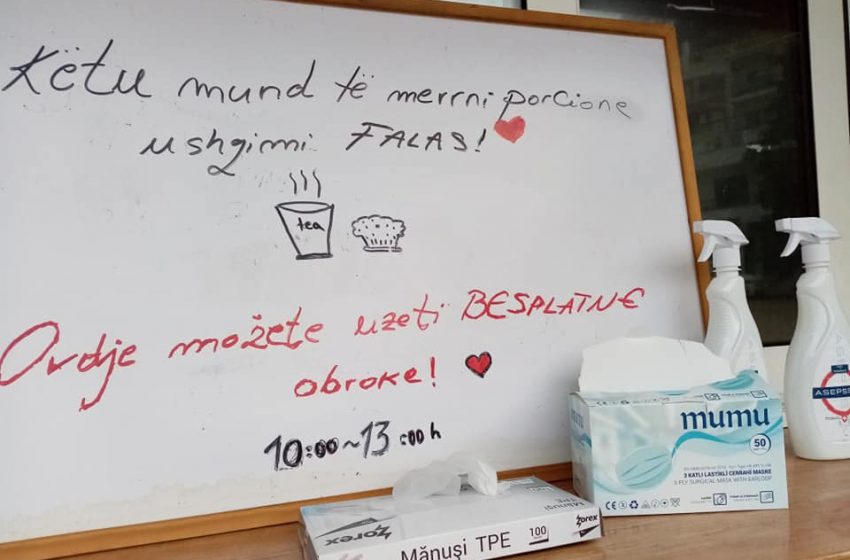 Këtu mund të merrni porcione
ushqimi FALAS!
tea
Ovdje možete uzeti BESPLATNE
obroke!
10:00~13:00h
mumu
50
3 KATLI LASTİKLİ CERRAHİ MASKE
3 PLY SURGICAL MASK WITH EARLOOP
Zorex
Mănuși TPE
100
Zorex
TPE